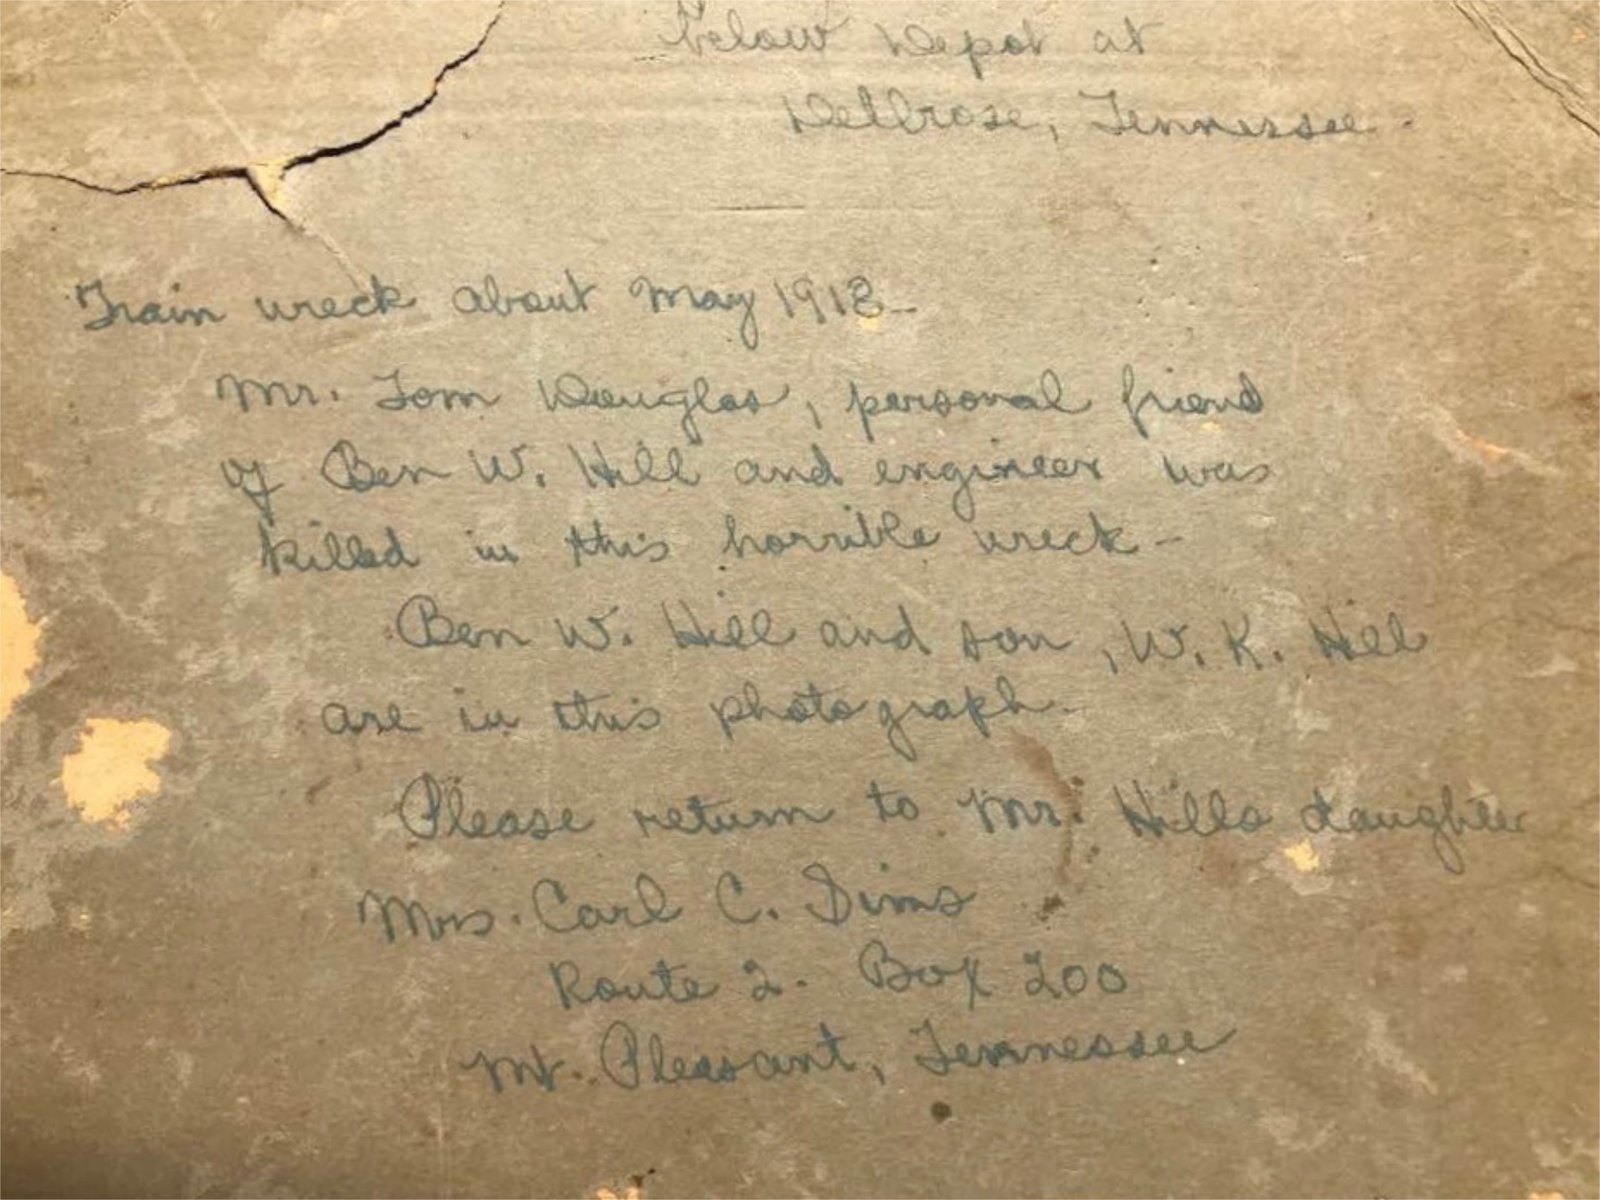 below Depot at
Dellrose, Tennessee.
Train wreck about May 1918-
Mr. Tom Douglas, personal friend
of Ben W. Hill and engineer was
killed in this horrible wreck-
Ben W. Hill and son, W. K. Hill
are in this photograph-
Please return to Mr. Hills daughter
Mrs. Carl C. Sims
Route 2. Box 200
Mt. Pleasant, Tennessee